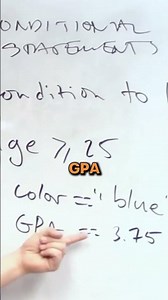 CONDITIONAL
STATEMENTS
condition to
age ≥ 25
GPA
color == "blue"
GPA == 3.75